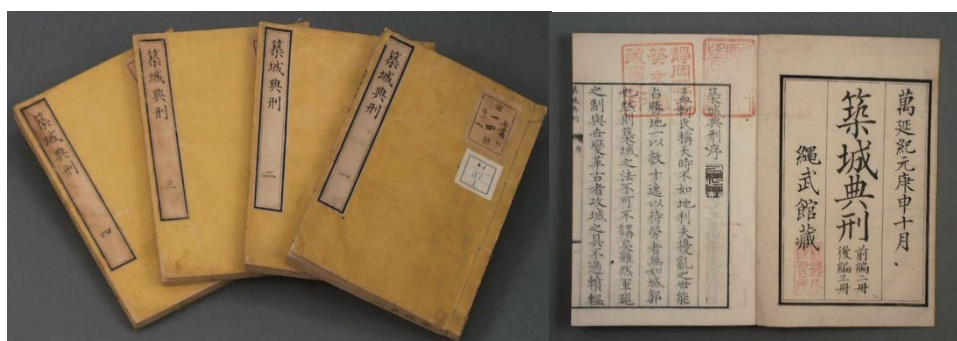 築城典刑 一
築城典刑 二
築城典刑 三
築城典刑 四
萬延紀元庚申十月
築城典刑
前編二冊
後編三冊
繩武館藏
築城典刑序
孟軻氏稱天時不如地利夫擾亂之世能
占勝地一以敵十逸以待勞者無如城郭
也然則築城之法不可不講矣雖然軍
之制與世變革古者攻城之具不過轒轀